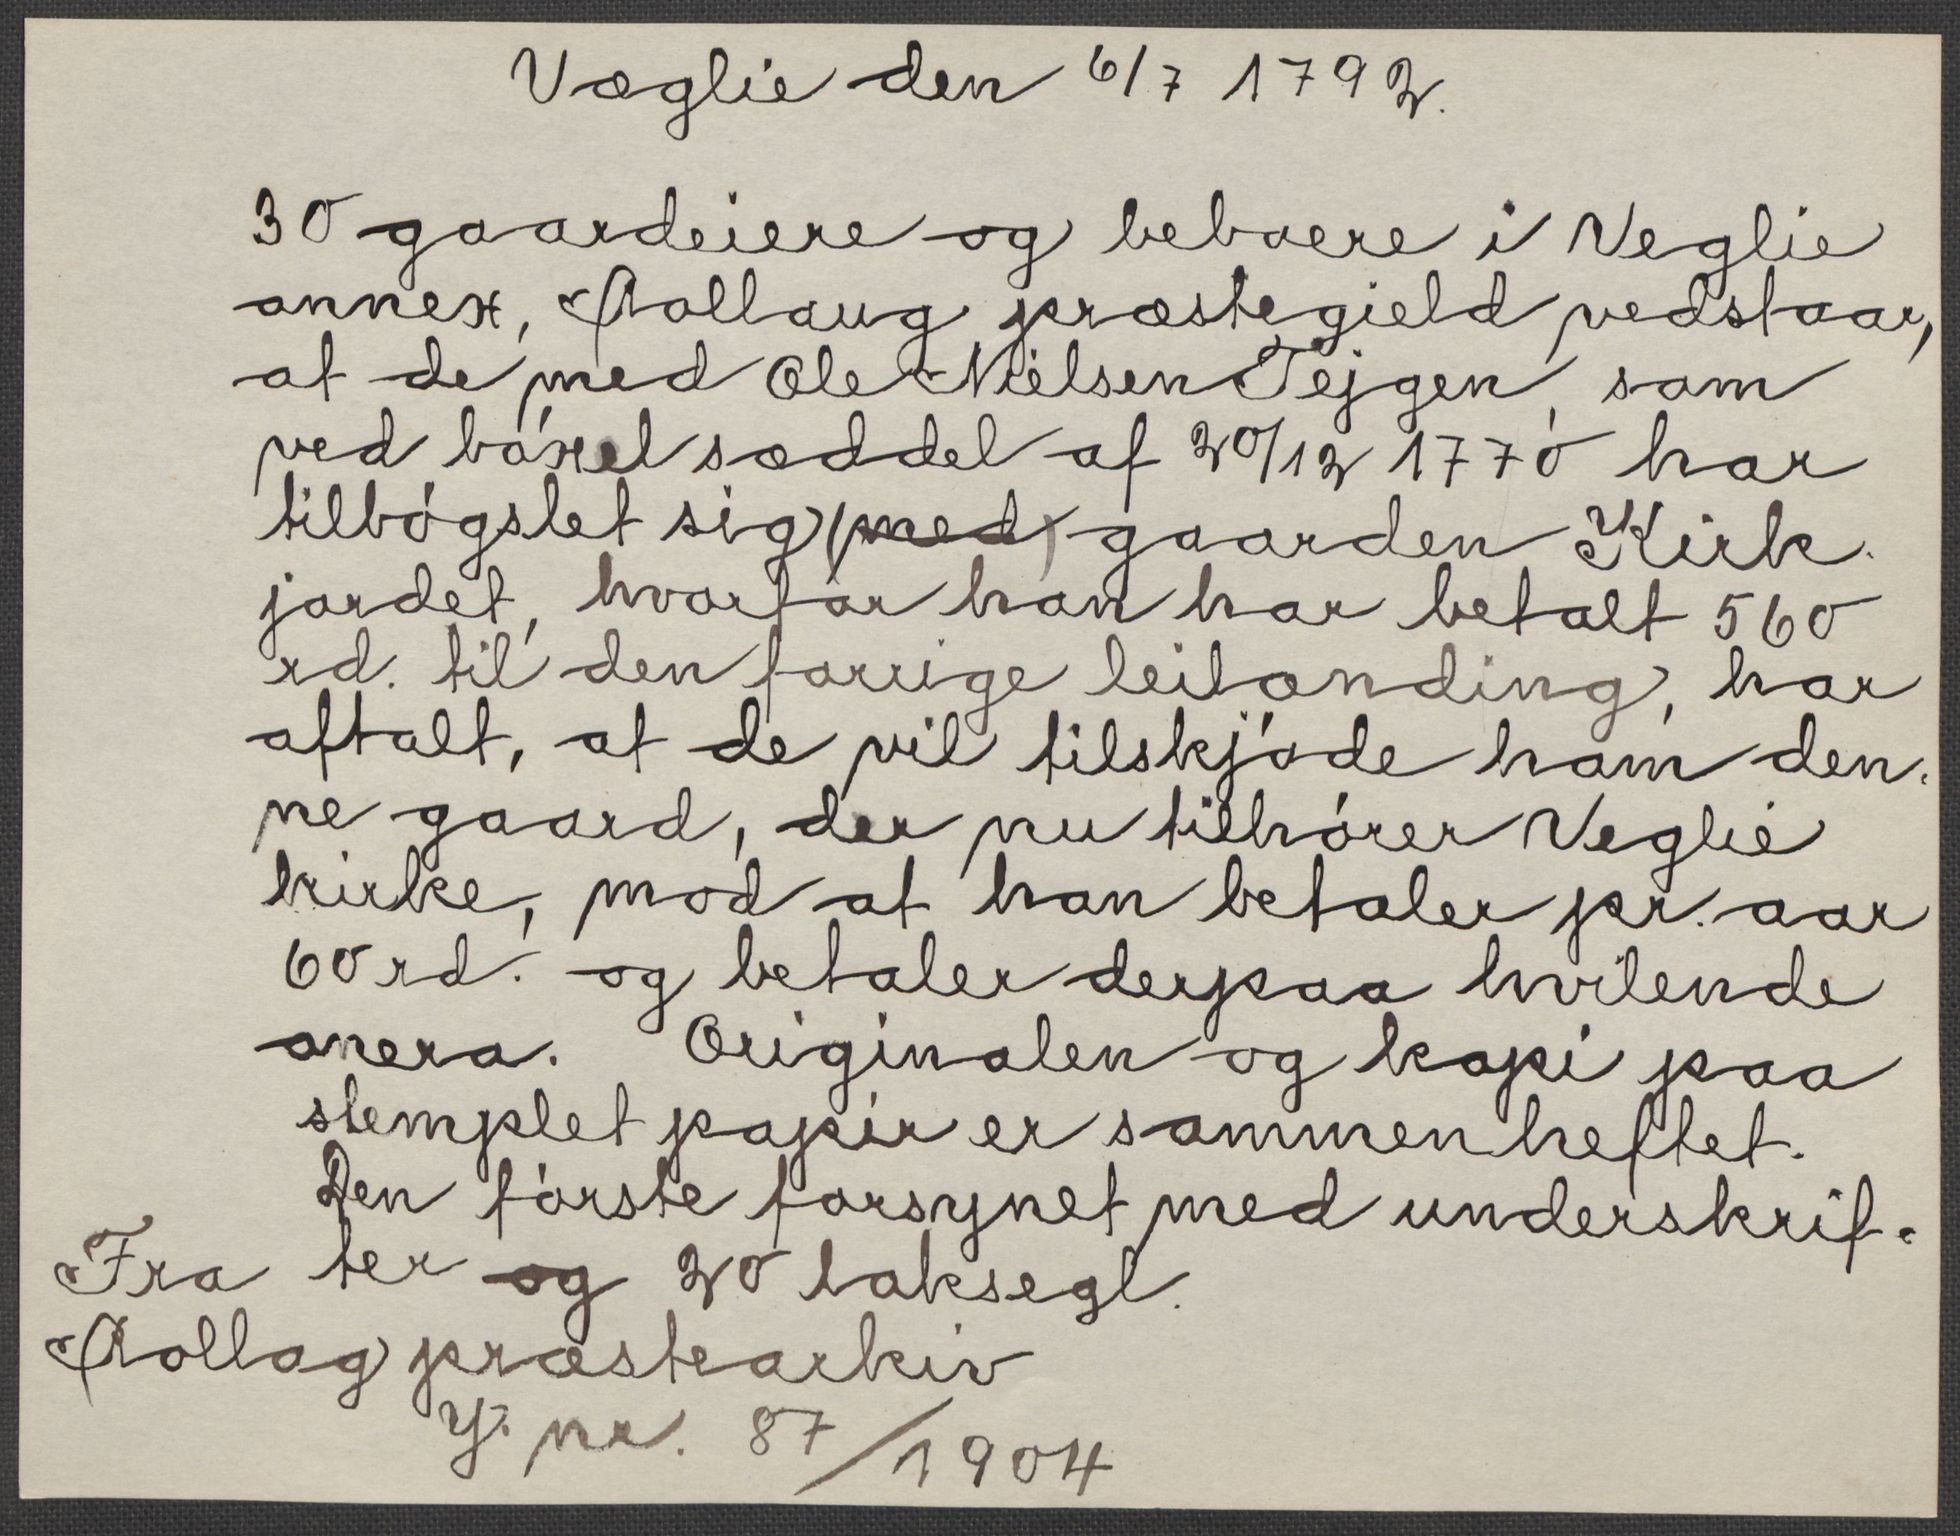 Væglie den 6/7 1792.
30 gaardeiere og beboere i Veglie
annex, Rollaug præstegield vedstaar,
at de med Ole Nielsen Tejgen, som
ved bóxelsæddel af 20/12 1770 har
tilbógslet sig (med) gaarden Kirk-
jordet, hvorfor han har betalt 560
rd. til den forrige leilænding, har
aftalt, at de vil tilskjóde ham den-
ne gaard, der nu tilhórer Veglie
kirke, mod at han betaler pr. aar
60 rd. og betaler derpaa hvilende
onera. Originalen og kopi paa
stemplet papir er sammenheftet.
Den fórste forsynet med underskrif-
ter og 20 laksegl.
Fra
Rollag præstearkiv
J. nr. 87/1904